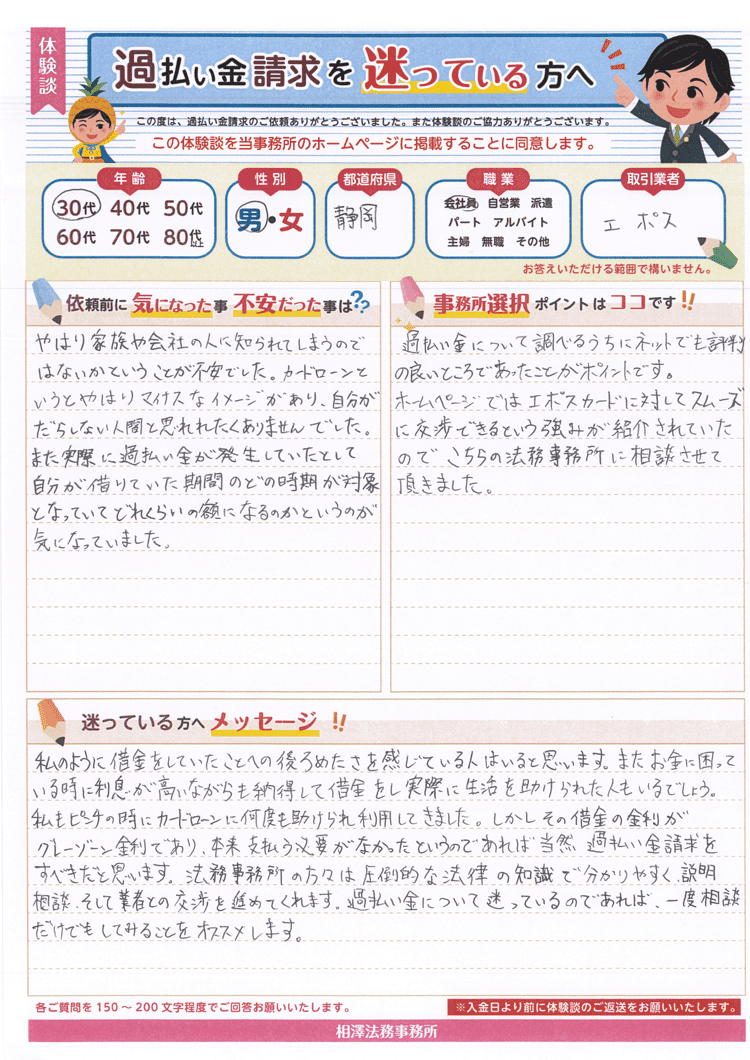 体験談
過払い金請求を迷っている方へ
この度は、過払い金請求のご依頼ありがとうございました。また体験談のご協力ありがとうございます。
この体験談を当事務所のホームページに掲載することに同意します。
年齢
30代 40代 50代
60代 70代 80代以上
性別
男・女
都道府県
静岡
職業
会社員 自営業 派遣
パート アルバイト
主婦 無職 その他
取引業者
エポス
お答えいただける範囲で構いません。
依頼前に気になった事 不安だった事は??
やはり家族や会社の人に知られてしまうので
はないかということが不安でした。カードローンと
いうとやはりマイナスなイメージがあり、自分が
だらしない人間と思われたくありませんでした。
また実際に過払い金が発生していたとして
自分が借りていた期間のどの時期が対象
となっていてどれくらいの額になるのかというのが
気になっていました。
事務所選択ポイントはココです!!
過払い金について調べるうちにネットでも評判
の良いところであったことがポイントです。
ホームページではエポスカードに対してスムーズ
に交渉できるという強みが紹介されていた
のでこちらの法務事務所に相談させて
頂きました。
迷っている方へメッセージ!!
私のように借金をしていたことへの後ろめたさを感じている人はいると思います。またお金に困って
いる時に利息が高いながらも納得して借金をし実際に生活を助けられた人もいるでしょう。
私もピンチの時にカードローンに何度も助けられ利用してきました。しかしその借金の金利が
グレーゾーン金利であり、本来支払う必要がなかったというのであれば当然、過払い金請求を
すべきだと思います。法務事務所の方々は圧倒的な法律の知識で分かりやすく、説明
相談、そして業者との交渉を進めてくれます。過払い金について迷っているのであれば、一度相談
だけでもしてみることをオススメします。
各ご質問を150〜200文字程度でご回答お願いいたします。
※入金日より前に体験談のご返送をお願いいたします。
相澤法務事務所